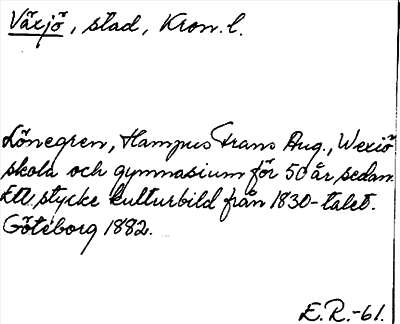 Växjö, stad, Kron. l.
Lönegren, Hampus Frans Aug., Wexiö
skola och gymnasium för 50 år sedan.
Ett stycke kulturbild från 1830-talet.
Göteborg 1882.
E.R.-61.